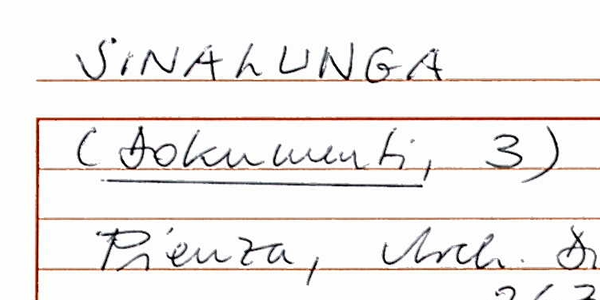 SINALUNGA
(Dokumenti, 3)
Pienza, Arch.